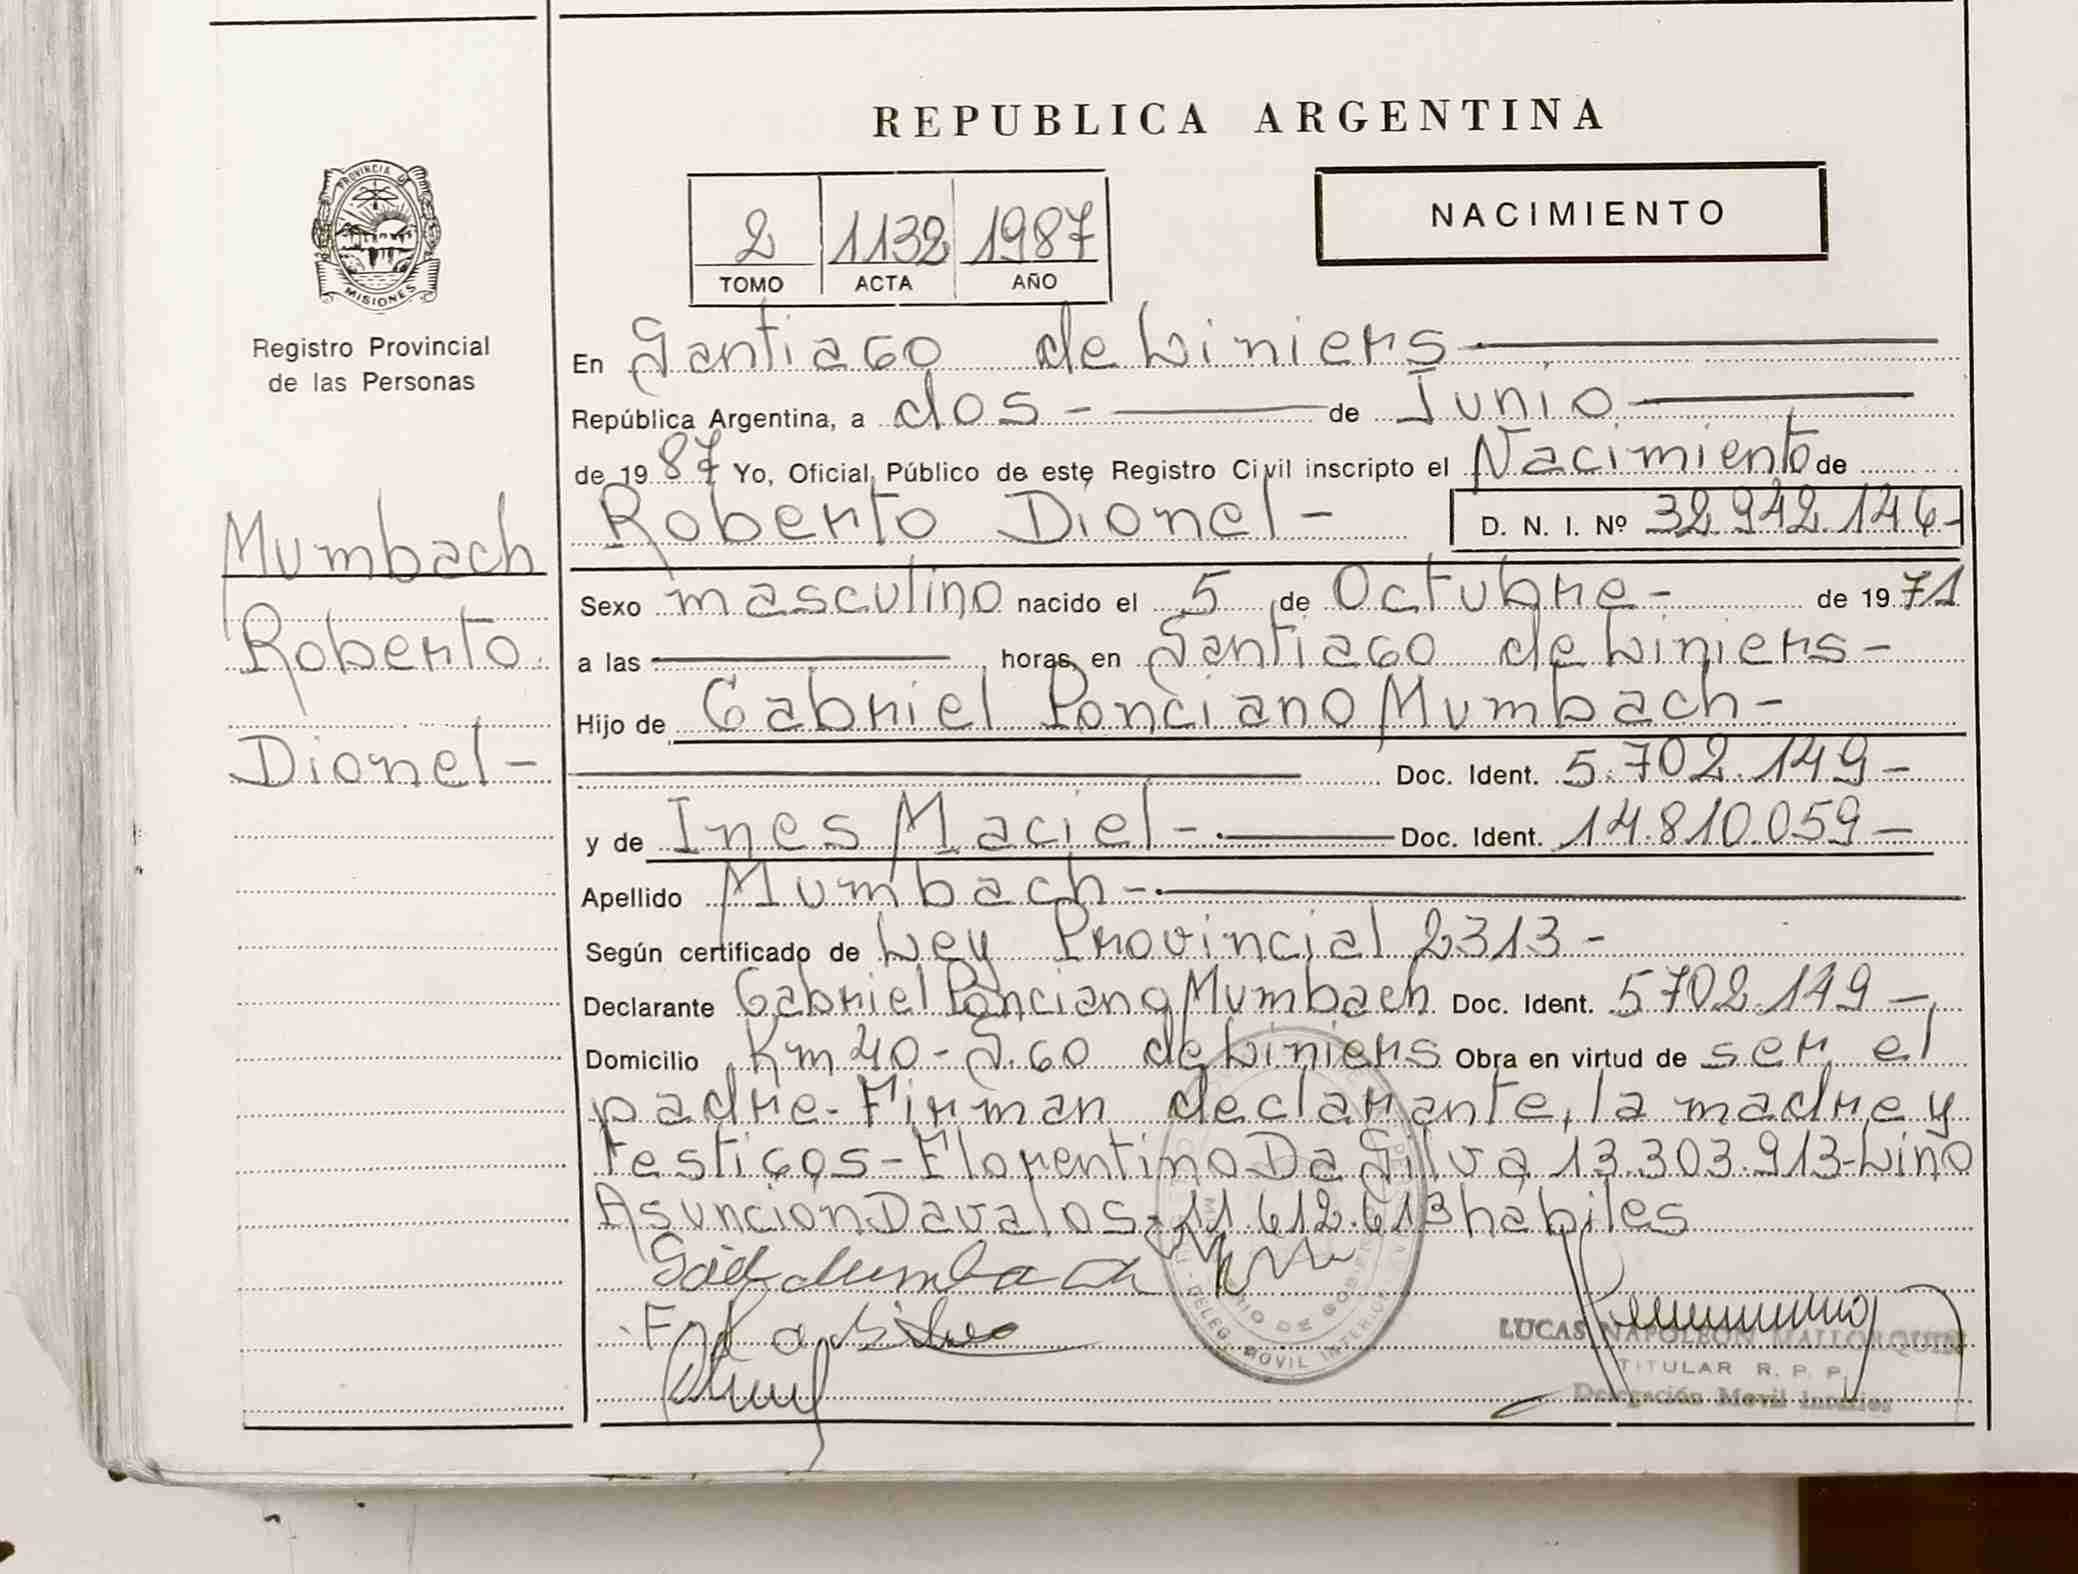 REPUBLICA ARGENTINA
NACIMIENTO
2 1132 1987
TOMO ACTA AÑO
PROVINCIA DE
MISIONES
Registro Provincial
de las Personas
Mumbach
Roberto
Dionel-
En Santiago de Liniers
República Argentina, a dos - de Junio
de 1987 Yo, Oficial Público de este Registro Civil inscripto el Nacimiento de
Roberto Dionel - D. N. I. Nº 32.942.146-
Sexo masculino nacido el 5 de Octubre - de 1971
a las horas, en Santiago de Liniers-
Hijo de Gabriel Ponciano Mumbach-
Doc. Ident. 5.702.149-
y de Ines Maciel- Doc. Ident. 14.810.059-
Apellido Mumbach-
Según certificado de Ley Provincial 2313-
Declarante Gabriel Ponciano Mumbach Doc. Ident. 5702.149-
Domicilio Km 40-S.Go de Liniers Obra en virtud de ser el
padre-Firman declarante, la madre y
testigos-Florentino Da Silva 13.303.913-Lino
Asuncion Davalos-11.612.613 habiles
Mumbach
LUCAS NAPOLEON MALLORQUIN
TITULAR R. P. P.
Delegación Movil Interior
DELEG. MOVIL INTERIOR